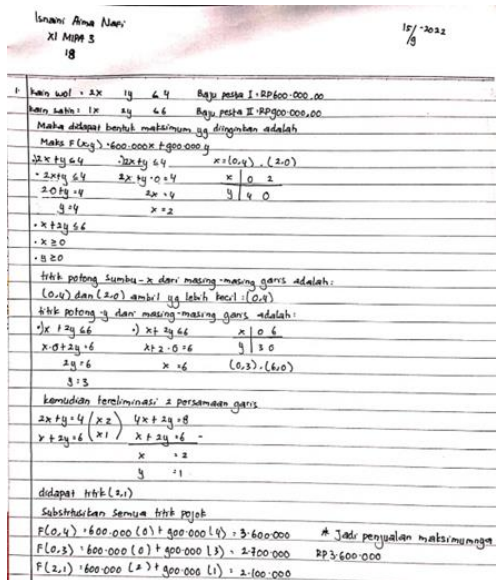 Isnaini Aima Nafi
XI MIPA 3
18
15/9-2022
1. kain wol = 2x 1y ≤ 4 Baju pesta I = RP600.000,00
kain satin = 1x 2y ≤ 6 Baju pesta II = RP900.000,00
Maka didapat bentuk maksimum yg diinginkan adalah
Maks F(x,y) = 600.000x + 900.000y
2x+y ≤ 4 2x+y ≤ 4 x = (0,4), (2.0)
• 2x+y ≤ 4 2x+y.0 = 4 x | 0 2
2.0+y = 4 2x = 4 y | 4 0
y = 4 x = 2
• x+2y ≤ 6
• x ≥ 0
• y ≥ 0
titik potong sumbu-x dari masing-masing garis adalah:
(0,4) dan (2.0) ambil yg lebih kecil : (0,4)
titik potong -y dari masing-masing garis adalah:
•) x + 2y ≤ 6 •) x + 2y ≤ 6 x | 0 6
x.0+2y = 6 x+2.0 = 6 y | 3 0
2y = 6 x = 6 (0,3), (6,0)
y = 3
kemudian tereliminasi 2 persamaan garis
2x+y = 4 | x2 | 4x+2y = 8
x+2y = 6 | x1 | x+2y = 6 -
x = 2
y = 1
didapat titik (2,1)
Substitusikan semua titik pojok
F(0,4) = 600.000 (0) + 900.000 (4) = 3.600.000 * Jadi penjualan maksimumnya
F(0,3) = 600.000 (0) + 900.000 (3) = 2.700.000 RP 3.600.000
F(2,1) = 600.000 (2) + 900.000 (1) = 2.100.000